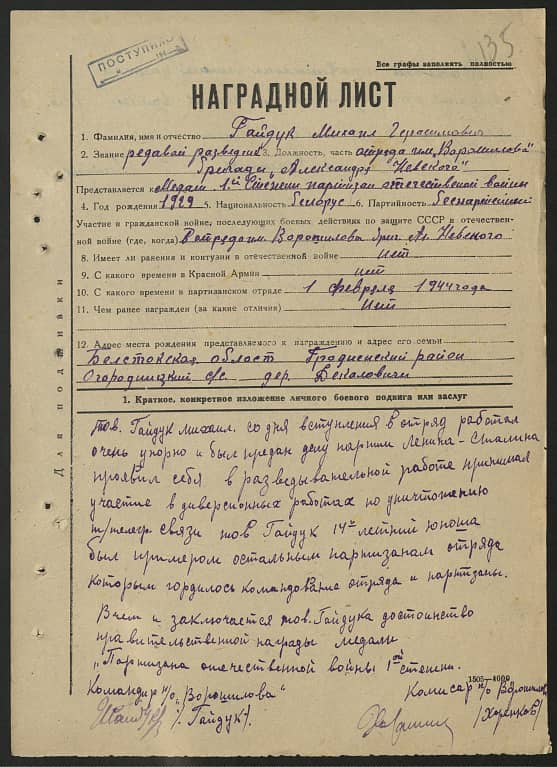 ПОСТУПИЛО
135
Все графы заполнять полностью
НАГРАДНОЙ ЛИСТ
1. Фамилия, имя и отчество Гайдук Михаил Герасимович
2. Звание редавой разведчик 3. Должность, часть отряда им. Ворошилова
бригади "Александра Невского"
Представляется к Медали 1ой Степени партизан отечественой войны
4. Год рождения 1929 5. Национальность белорус 6. Партийность беспартийный
Участие в гражданской войне, последующих боевых действиях по защите СССР и отечествен-
ной войне (где, когда) В отряде им. Ворошилова бриг. Ал. Невского
8. Имеет ли ранения и контузии в отечественной войне нет
9. С какого времени в Красной Армии нет
10. С какого времени в партизанском отряде 1 февраля 1944 года
11. Чем ранее награжден (за какие отличия) Нет
12. Адрес места рождения представляемого к награждению и адрес его семьи
Белстокская област Гродненский район
Огородницкий с/с дер. Бекаловичи
Для подшивки
1. Краткое, конкретное изложение личного боевого подвига или заслуг
тов. Гайдук Михаил. со дня вступления в отряд работал
очень упорно и был предан делу партии Ленина-Сталина
проявил себя в разведывательной работе принимал
участие в диверсионных работах по уничтожению
т/телегр. связи тов Гайдук 14и летний юноша
был примером остальным партизанам отряда
которым гордилось командование отряда и партизаны.
В чем и заключается тов. Гайдука достоинство
правительственной награды медали
"Партизана отечественной войны 1ой степени.
1505—4000
Командир п/о "Ворошилова" Комисар п/о Ворошилов
/Гайдук/. /Харенков/